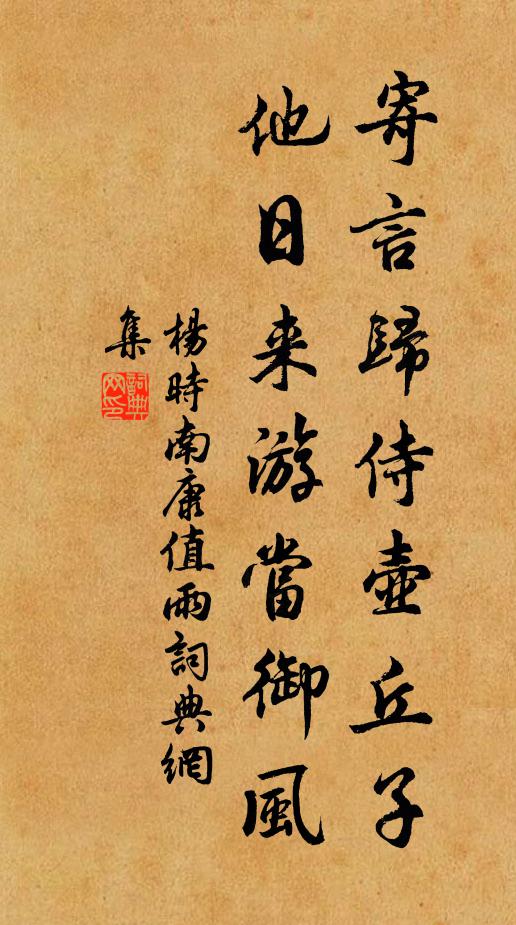 寄言歸侍壺丘子
他日来游當御風
楊時南康值雨詞典網
集
詞典网印